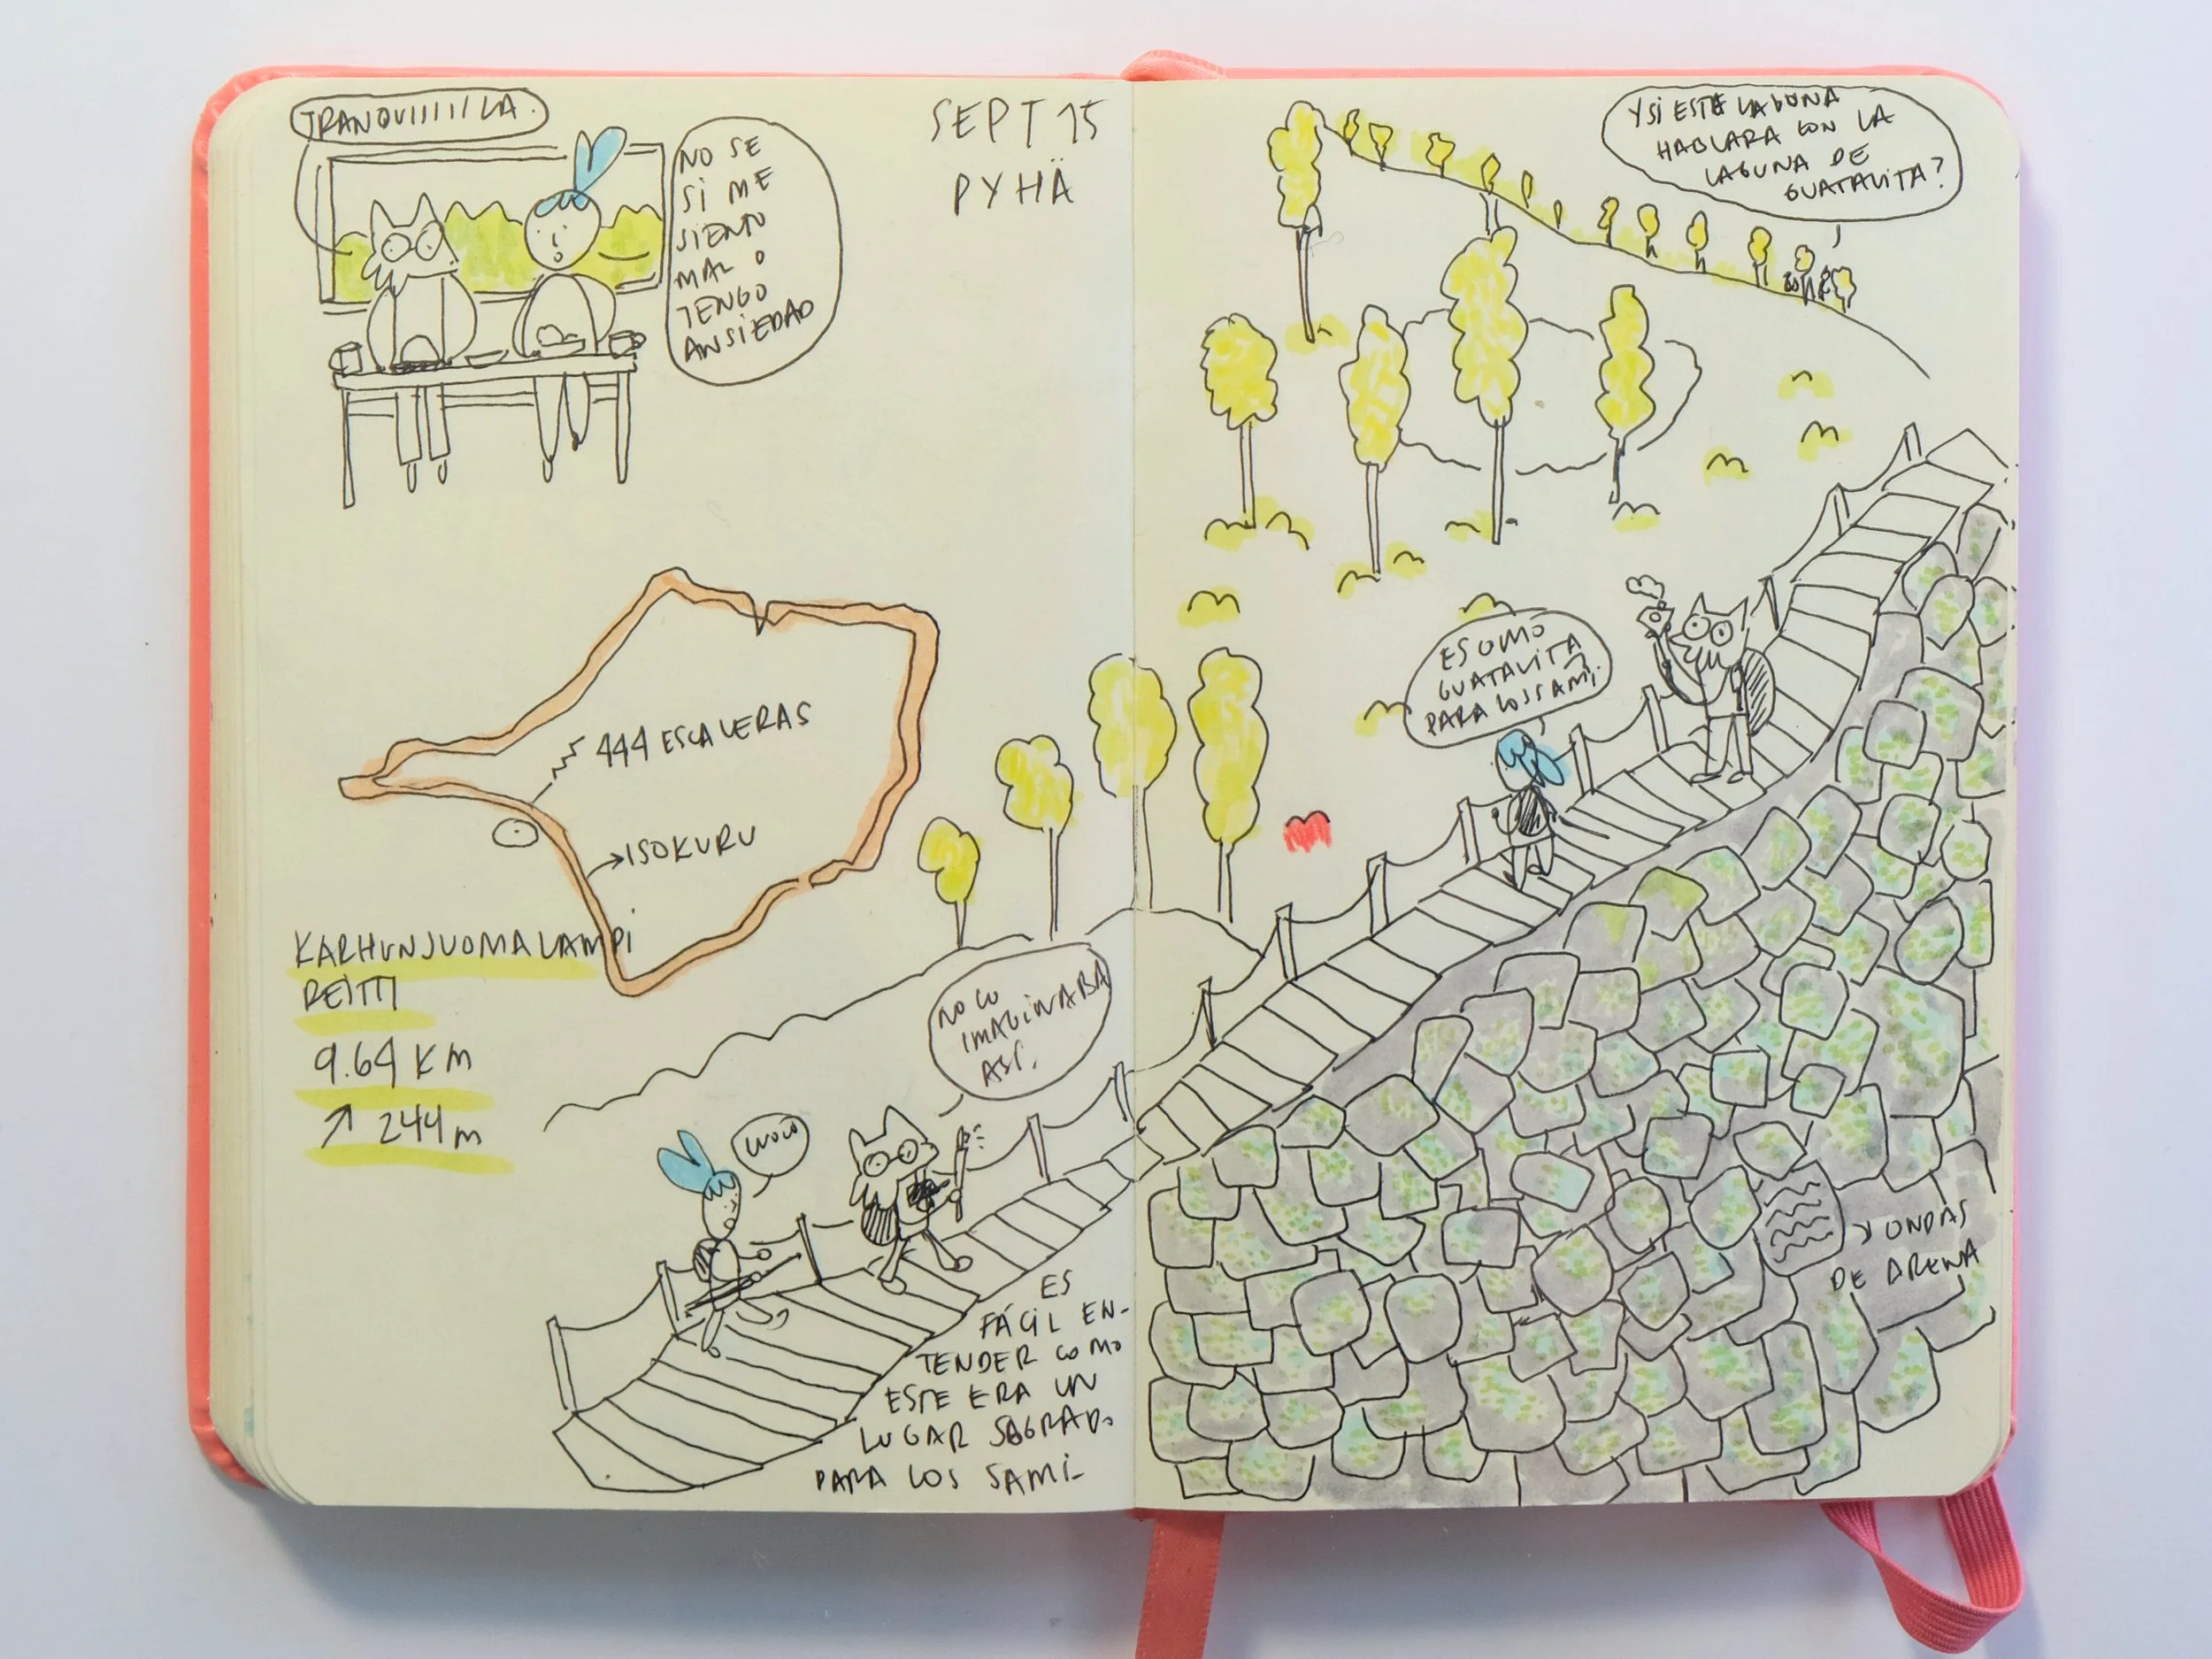 TRANQUIIIIILA.
NO SE
SI ME
SIENTO
MAL O
TENGO
ANSIEDAD
SEPT 15
PYHÄ
444 ESCALERAS
ISOKURU
KARHUNJUOMALAMPI
REITTI
9.64 KM
↗ 244 m
NO LO
IMAGINABA
ASÍ.
ES
FÁCIL EN-
TENDER COMO
ESTE ERA UN
LUGAR SAGRADO
PARA LOS SAMI-
Y SI ESTE LAGUNA
HABLARA CON LA
LAGUNA DE
GUATAVITA?
ES COMO
GUATAVITA
PARA LOS SAMI.
ONDAS
DE ARENA